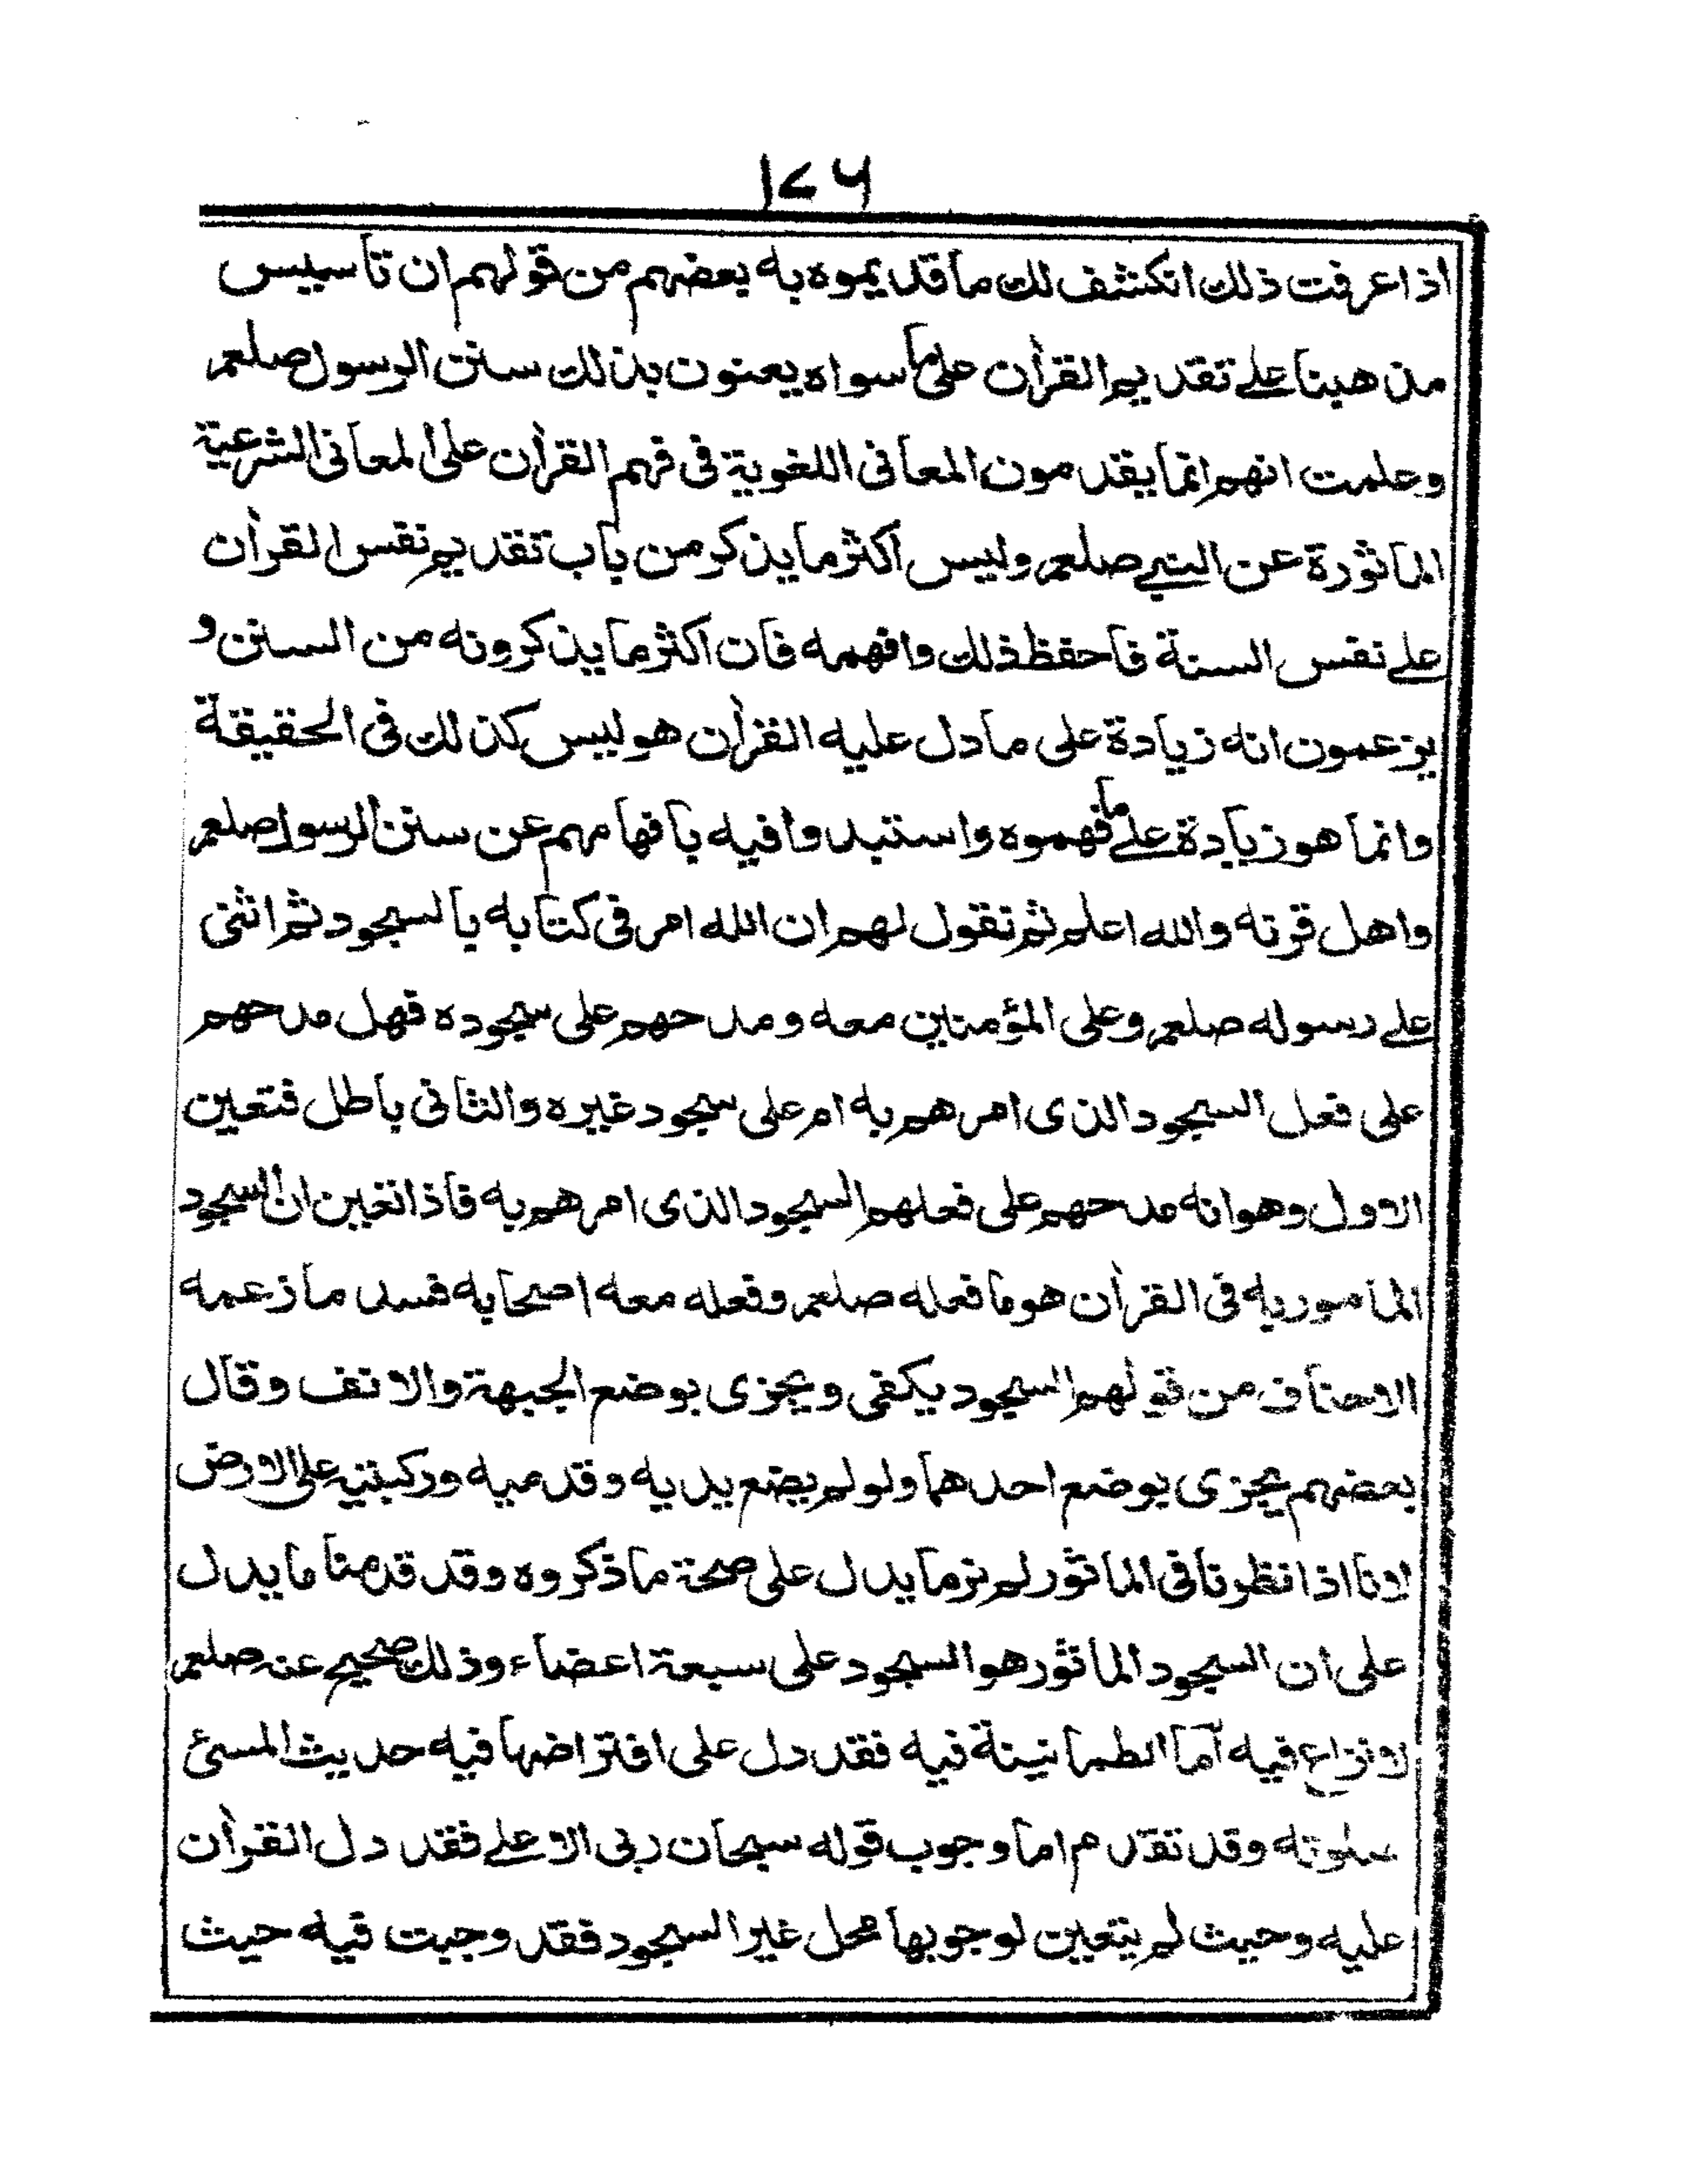 ١٧٦
اذا عرفت ذلك انكشف لك ما قد يموه به بعضهم من قولهم ان تاسيس
مذهبنا على تقديم القرأن على ما سواه يعنون بذلك سنن الرسول صلعم
وعلمت انهم انما يقدمون المعانى اللغوية فى فهم القرأن على المعانى الشرعية
الماثورة عن النبي صلعم وليس اكثر ما يذكر من باب تقديم نفس القرأن
على نفس السنة فاحفظ ذلك وافهمه فان اكثر ما يذكرونه من السنن و
يزعمون انه زيادة على ما دل عليه القرأن هو ليس كذلك فى الحقيقة
وانما هو زيادة على ما فهموه واستبدوا فيه بافهامهم عن سنن الرسول صلعم
واهل قرنه والله اعلم ثم نقول لهم ان الله امر فى كتابه بالسجود ثم اثنى
على رسوله صلعم وعلى المؤمنين معه ومدحهم على سجوده فهل مدحهم
على فعل السجود الذى امرهم به ام على سجود غيره والثانى باطل فتعين
الاول وهو انه مدحهم على فعلهم السجود الذى امرهم به فاذا تعين ان السجود
المامور به فى القرأن هو ما فعله صلعم وفعله معه اصحابه فسد ما زعمه
الاحناف من قولهم السجود يكفى ويجزى بوضع الجبهة والانف وقال
بعضهم يجزى بوضع احدهما ولو لم يضع يديه وقدميه وركبتيه على الارض
لانا اذا نظرنا فى الماثور لم نر ما يدل على صحة ما ذكروه وقد قدمنا ما يدل
على ان السجود الماثور هو السجود على سبعة اعضاء وذلك صحيح عنه صلعم
لا نزاع فيه اما الطمانينة فيه فقد دل على افتراضها فيه حديث المسئ
صلوته وقد تقدم اما وجوب قوله سبحان ربى الاعلى فقد دل القرأن
عليه وحيث لم يتعين لوجوبها محل غير السجود فقد وجبت فيه حيث